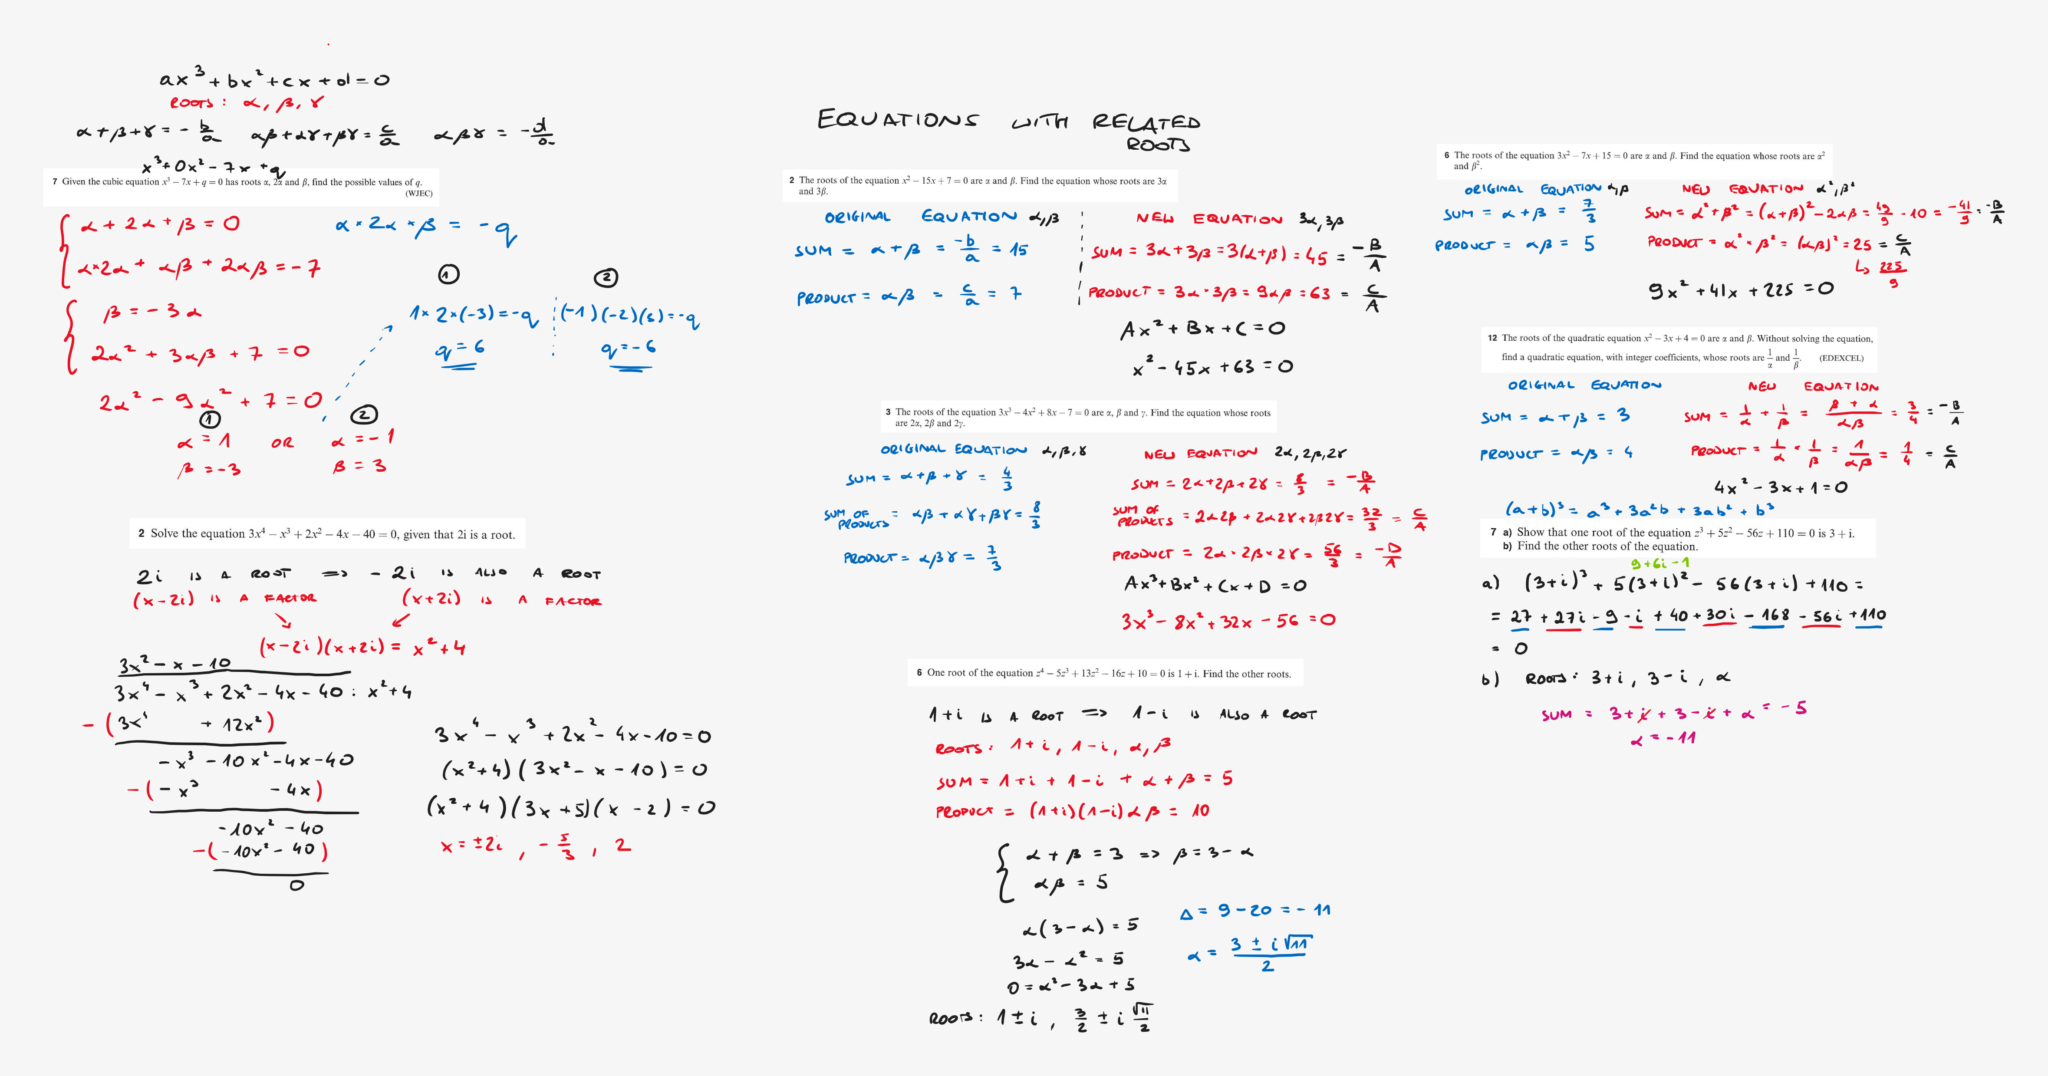 ax³ + bx² + cx + d = 0
ROOTS : α, β, γ
α + β + γ = - b/a   αβ + αγ + βγ = c/a   αβγ = - d/a
x³ + 0x² - 7x + q
7 Given the cubic equation x³ − 7x + q = 0 has roots α, 2α and β, find the possible values of q.
(WJEC)
α + 2α + β = 0   α × 2α × β = - q
α × 2α + αβ + 2αβ = - 7
① ②
β = - 3α   1 × 2 × (-3) = - q   (-1)(-2)(3) = - q
2α² + 3αβ + 7 = 0   q = 6   q = - 6
2α² - 9α² + 7 = 0
① ②
α = 1 OR α = - 1
β = - 3   β = 3
2 Solve the equation 3x⁴ − x³ + 2x² − 4x − 40 = 0, given that 2i is a root.
2i IS A ROOT => - 2i IS ALSO A ROOT
(x - 2i) IS A FACTOR   (x + 2i) IS A FACTOR
(x - 2i)(x + 2i) = x² + 4
3x² - x - 10
3x⁴ - x³ + 2x² - 4x - 40 : x² + 4
- (3x⁴ + 12x²)
- x³ - 10x² - 4x - 40
- (- x³ - 4x)
- 10x² - 40
- (- 10x² - 40)
0
3x⁴ - x³ + 2x² - 4x - 10 = 0
(x² + 4)(3x² - x - 10) = 0
(x² + 4)(3x + 5)(x - 2) = 0
x = ±2i , - 5/3 , 2
EQUATIONS WITH RELATED
ROOTS
2 The roots of the equation x² − 15x + 7 = 0 are α and β. Find the equation whose roots are 3α
and 3β.
ORIGINAL EQUATION α, β   NEW EQUATION 3α, 3β
SUM = α + β = -b/a = 15   SUM = 3α + 3β = 3(α + β) = 45 = -B/A
PRODUCT = αβ = c/a = 7   PRODUCT = 3α · 3β = 9αβ = 63 = C/A
Ax² + Bx + C = 0
x² - 45x + 63 = 0
3 The roots of the equation 3x³ − 4x² + 8x − 7 = 0 are α, β and γ. Find the equation whose roots
are 2α, 2β and 2γ.
ORIGINAL EQUATION α, β, γ   NEW EQUATION 2α, 2β, 2γ
SUM = α + β + γ = 4/3   SUM = 2α + 2β + 2γ = 8/3 = -B/A
SUM OF PRODUCTS = αβ + αγ + βγ = 8/3   SUM OF PRODUCTS = 2α2β + 2α2γ + 2β2γ = 32/3 = C/A
PRODUCT = αβγ = 7/3   PRODUCT = 2α · 2β × 2γ = 56/3 = -D/A
Ax³ + Bx² + Cx + D = 0
3x³ - 8x² + 32x - 56 = 0
6 One root of the equation z⁴ − 5z³ + 13z² − 16z + 10 = 0 is 1 + i. Find the other roots.
1 + i IS A ROOT => 1 - i IS ALSO A ROOT
ROOTS : 1 + i, 1 - i, α, β
SUM = 1 + i + 1 - i + α + β = 5
PRODUCT = (1+i)(1-i)αβ = 10
α + β = 3 => β = 3 - α
αβ = 5
α(3 - α) = 5
3α - α² = 5
0 = α² - 3α + 5
Δ = 9 - 20 = - 11
α = (3 ± i√11)/2
ROOTS : 1 ± i , 3/2 ± i √11/2
6 The roots of the equation 3x² − 7x + 15 = 0 are α and β. Find the equation whose roots are α²
and β².
ORIGINAL EQUATION α, β   NEW EQUATION α², β²
SUM = α + β = 7/3   SUM = α² + β² = (α+β)² - 2αβ = 49/9 - 10 = -41/9 = -B/A
PRODUCT = αβ = 5   PRODUCT = α² · β² = (αβ)² = 25 = C/A
↳ 225/9
9x² + 41x + 225 = 0
12 The roots of the quadratic equation x² − 3x + 4 = 0 are α and β. Without solving the equation,
find a quadratic equation, with integer coefficients, whose roots are 1/α and 1/β. (EDEXCEL)
ORIGINAL EQUATION   NEW EQUATION
SUM = α + β = 3   SUM = 1/α + 1/β = (β + α)/αβ = 3/4 = -B/A
PRODUCT = αβ = 4   PRODUCT = 1/α · 1/β = 1/αβ = 1/4 = C/A
4x² - 3x + 1 = 0
(a+b)³ = a³ + 3a²b + 3ab² + b³
7 a) Show that one root of the equation z³ + 5z² − 56z + 110 = 0 is 3 + i.
b) Find the other roots of the equation.
9 + 6i - 1
a) (3+i)³ + 5(3+i)² - 56(3+i) + 110 =
= 27 + 27i - 9 - i + 40 + 30i - 168 - 56i + 110
= 0
b) ROOTS : 3 + i, 3 - i, α
SUM = 3 + i + 3 - i + α = - 5
α = - 11